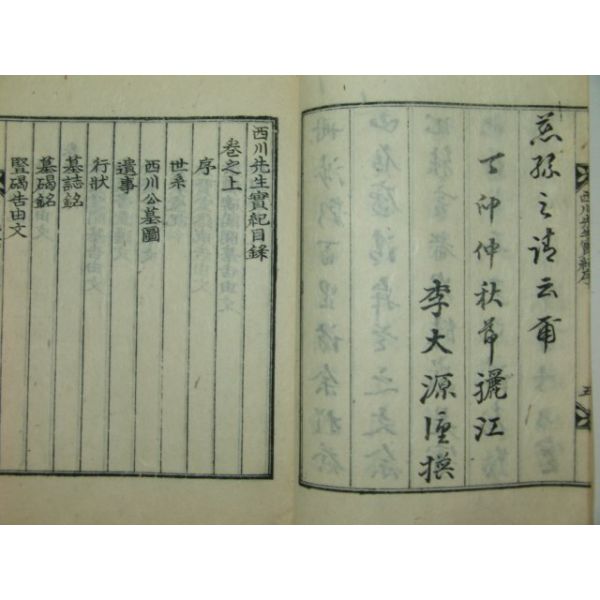 慈孫之請云爾
丁卯仲秋節驪江
李大源謹撰
西川先生實紀序
五
西川先生實紀目錄
卷之上
序
世系
西川公墓圖
遺事
行狀
墓誌銘
墓碣銘
竪碣告由文